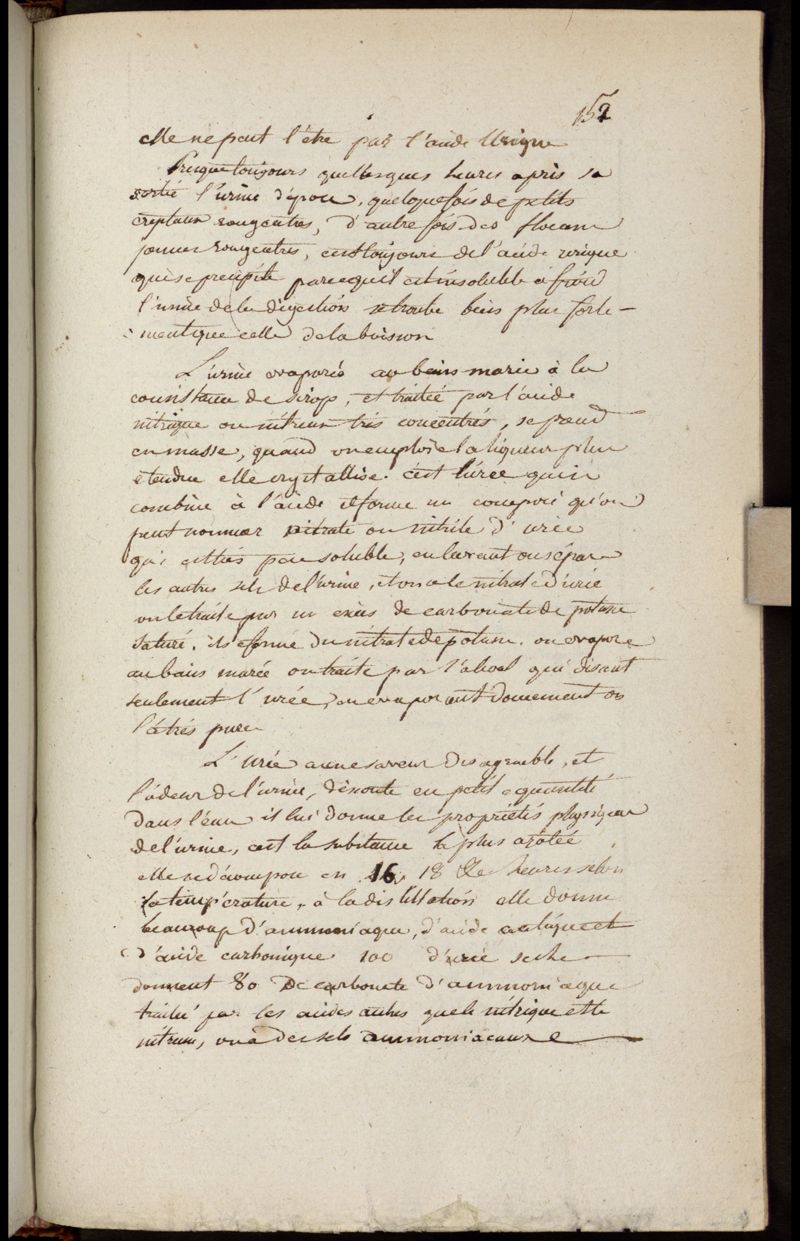 152
elle ne peut l'être par l'acide Urique
Presque toujours quelleques heures après sa
sortie l'urine dépose, quelquefois de petits
cristaux rougeatres, d'autre fois des flocons
jaunes rougeatres, c'est toujours de l'acide urique
qui se precipite parcequ'il est insoluble à froid
l'urine de la digestion se trouble bien plus forte-
ment que celle de la boisson
L'urine evaporée au bains marie à la
consistance de sirop, et traitée par l'acide
nitrique ou nitreux très concentrés, se prend
en masse, quand on emploie la liqueur plus
étendue elle crystallise. c'est l'urée qui se
combine à l'acide et forme un composé qu'on
peut nommer nitrate ou nitrite d'urée
qui est très peu soluble, en lavant on sépare
les autres sels de l'urine, et on a le nitrate d'urée
on le traite par un excès de carbonate de potasse
saturé. il se forme du nitrate de potasse. on evapore
au bains marée on traite par l'alcool qui disout
seulement l'urée, en evaporant doucement on
l'a très pure
L'Urée a une saveur desagreable, et
l'odeur de l'urine, dissoute en petit e quantité
dans l'éau il lui donne les propriétés physiques
de l'urine, c'est la substance la plus azotée
elle se décompose en 16, 18 heures selon
la température, à la distillation elle donne
beaucoup d'ammoniaque, d'acide
d'acide carbonique 100 d'urée seche
donnent 80 De carbonate d'ammoniaque
traitée par les acides autres que le nitrique et le
nitreux, on a des sels ammoniacaux